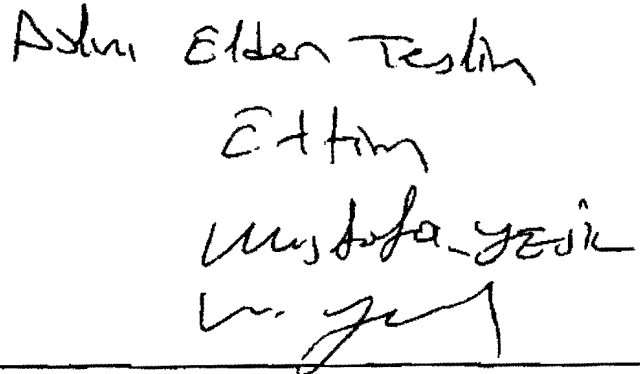 Aslını Elden Teslim
Ettim
Mustafa YEŞİL